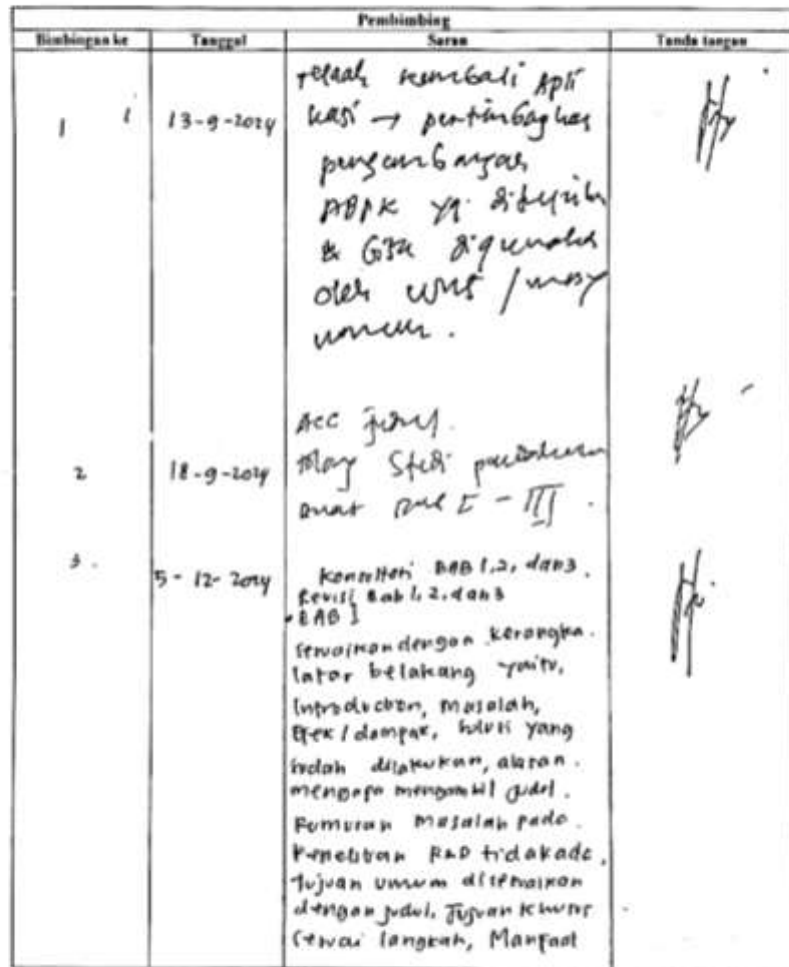 Pembimbing
Bimbingan ke Tanggal Saran Tanda tangan
1 13-9-2024
telaah kembali Apli
kasi → pertimbangkan
pengembangan
ABPK yg
& digunakan
oleh /masy
umum.
2 18-9-2024
ACC judul.
Studi pendahuluan
I - III.
3. 5-12-2024
Konsultasi BAB 1, 2, dan 3.
Revisi Bab 1, 2, dan 3
BAB 1
sesuaikan dengan kerangka.
latar belakang yaitu,
Introduction, masalah,
Efek/dampak, solusi yang
sudah dilakukan, alasan.
mengapa mengambil judul.
Rumusan masalah pada.
Penelitian R&D tidak ada,
tujuan umum disesuaikan
dengan judul, Tujuan khusus
sesuai langkah, Manfaat